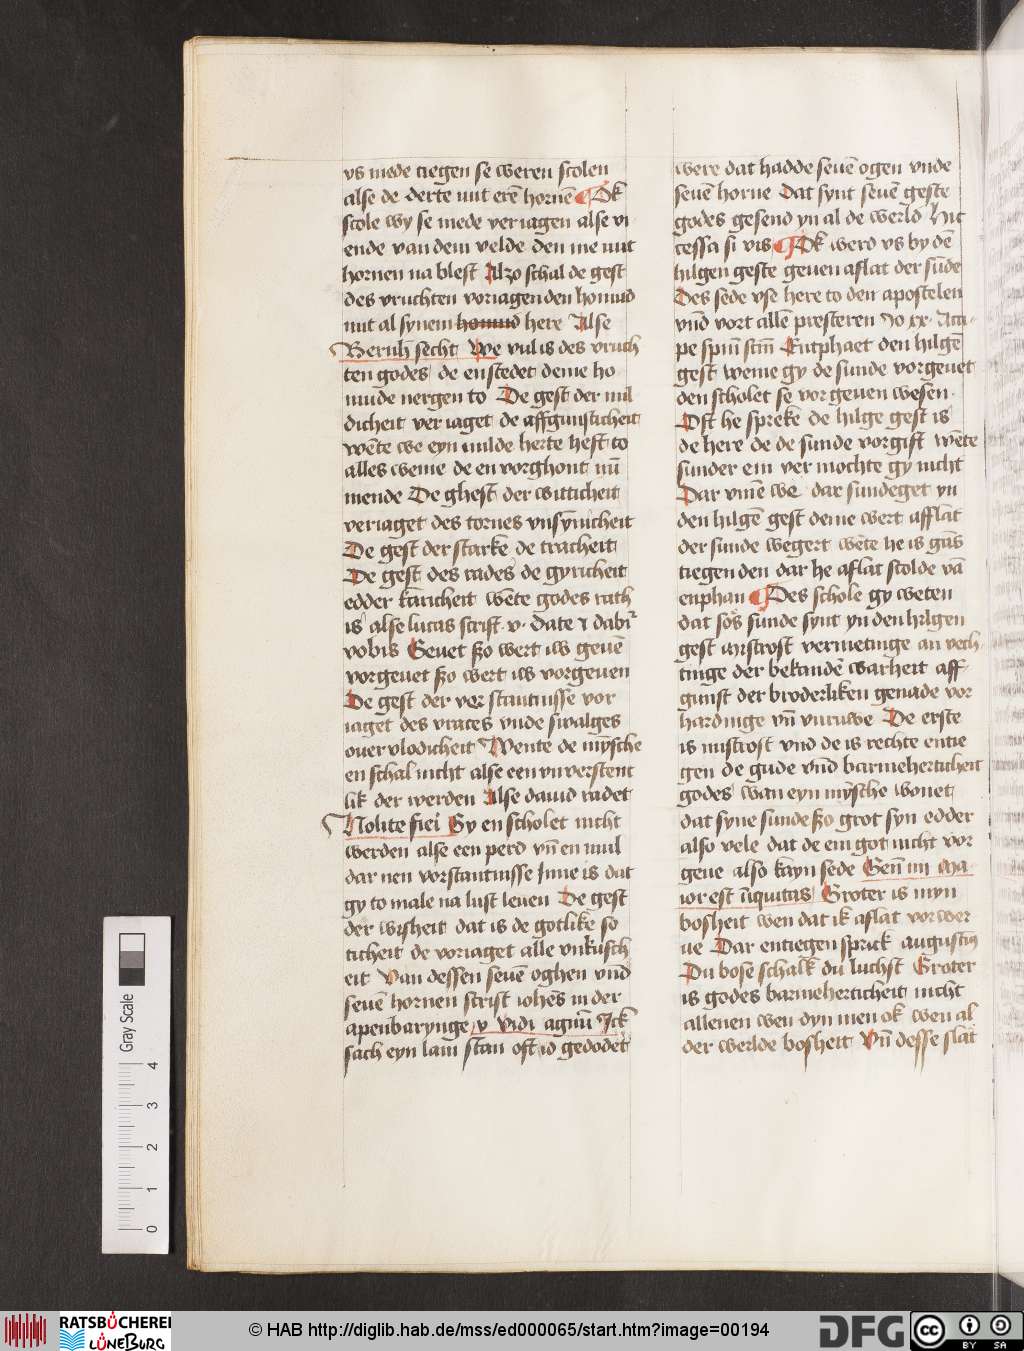 vs mede tiegen se weren scolen
alse de derte mit erē hornē Ok
scole wy se mede veriagen alse vi
ende van dem velde den me mit
hornen na blest Alzo schal de gest
des vruchten voriagen den homud
mit al synem homud here Alse
Bernh̄ secht We vul is des vruch
ten godes de enstedet deme ho
mude nergen to De gest der mil
dicheit veriaget de affgunsticheit
wēte we eyn milde herte heft to
alles weme de en vorghont nū
mende De ghest der witticheit
veriaget des tornes vnsynnicheit
De gest der starke de tracheit
De gest des rades de gyricheit
edder karicheit wēte godes rath
is alse lucas scrift v date ⁊ dabit᷑
vobis Geuet szo wert iw geuē
vorgeuet szo wert iw vorgeuen
De gest der verstantnisse vor
iaget des vrates vnde swalges
ouervlodicheit Wente de mȳsche
en schal nicht alse een vnverstent
lik der werden Alse dauid radet
Nolite fiei Gy en scholet nicht
werden alse een perd vn̄ en mul
dar nen vorstantnisse Inne is dat
gy to male na lust leuen De gest
der wisheit dat is de gotlike so
ticheit de voriaget alle vnkusch
eit Van dessen seuē oghen vnd
seuē hornen scrift iohēs in der
apenbarynge v vidi agnū Ick
sach eyn lam stan oft id gedodet
were dat hadde seuē ogen vnde
seuē horne Dat synt seuē geste
godes gesend yn al de werld Hit
tessa si vis Ok werd vs by dē
hilgen geste geuen aflat der sūde
Des sede vse here to den apostelen
vnd vort allē presteren Jo xx Acci
pe spm̄ scm̄ Entphaet den hilgē
gest weme gy de sunde vorgeuet
den scholet se vorgeuen wesen
Oft he spreke de hilge gest is
de here de de sunde vorgift wēte
sunder em vermochte gy nicht
Dar vmē we dar sundeget yn
den hilgē gest deme wert afflat
der sunde wegert wēte he is gās
tiegen den dar he aflat scolde vā
enphan Des schole gy weten
dat sos sunde synt yn den hilgen
gest mistrost vermetinge an vech
tinge der bekanden warheit aff
gunst der broderliken genade vor
hardinge vn̄ vnruwe De erste
is mistrost vnd de is rechte entie
gen de gude vnd barmeherticheit
godes wan eyn mȳsche wonet
dat syne sunde szo grot syn edder
also vele dat de em got nicht vor
geue also kayn sede Gen̄ iiii Ma
ior est iniquitas Groter is myn
bosheit wen dat ik aflat vorwer
ue Dar entiegen sprick augustin9
Du bose schalk du luchst Groter
is godes barmeherticheit nicht
allenen wen dyn men ok wen al
der werlde bosheit Vn̄ desse slat
Gray Scale
4
3
2
1
0
RATSBÜCHEREI
LÜNEBURG
© HAB http://diglib.hab.de/mss/ed000065/start.htm?image=00194
DFG
cc
BY SA